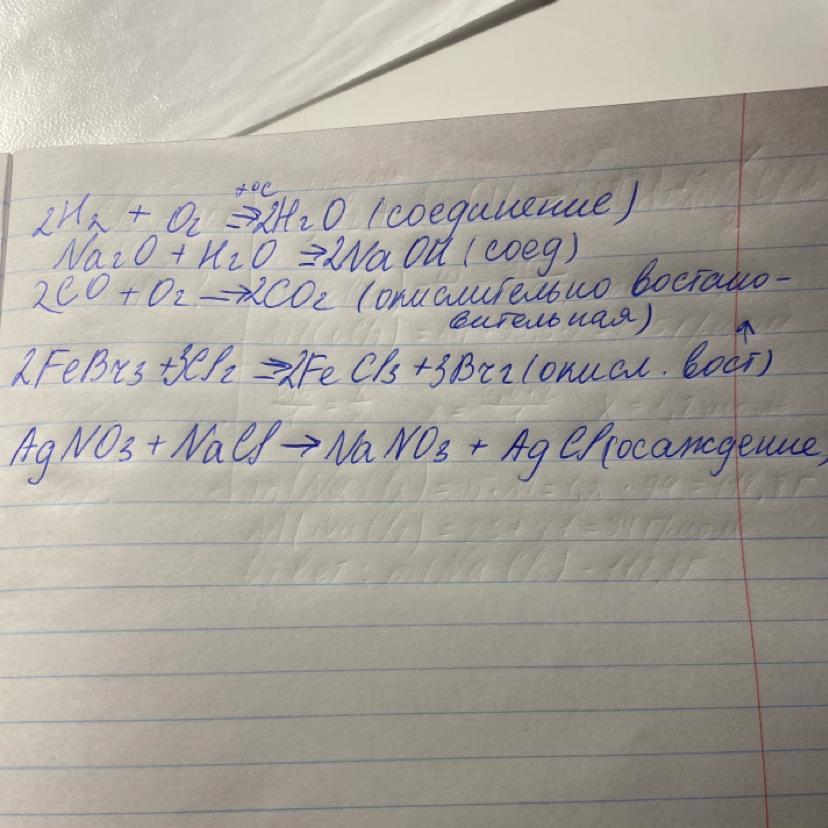 2H₂ + O₂ ⇒ t°C 2H₂O (соединение)
Na₂O + H₂O ⇒ 2NaOH (соед)
2CO + O₂ → 2CO₂ (окислительно востано-
вительная)
2FeBr₃ + 3Cl₂ ⇒ 2FeCl₃ + 3Br₂ (окисл. вост) ↑
AgNO₃ + NaCl → NaNO₃ + AgCl (осаждение)